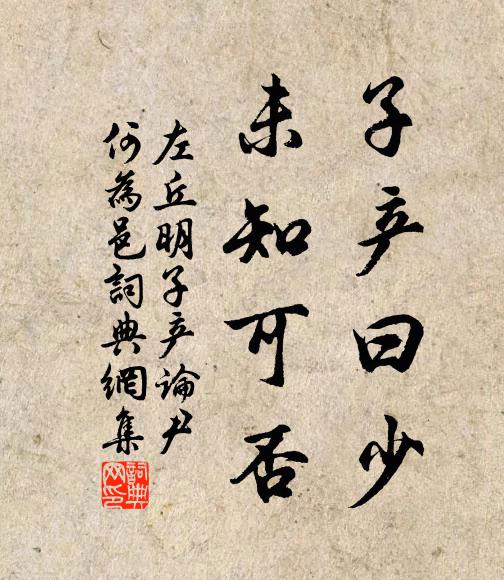 子产曰少
未知可否
左丘明子产論尹
何為邑詞典網集
詞典
网印